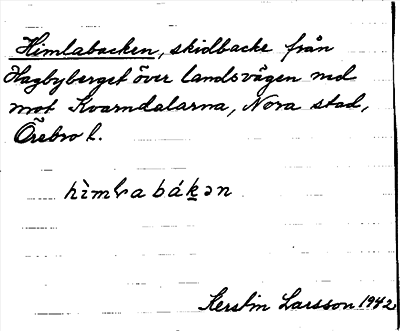 Himlabacken, skidbacke från
Hagbyberget över landsvägen ned
mot Kvarndalarna, Nora stad,
Örebro l.
hìmɽa bákən
Kerstin Larsson 1942